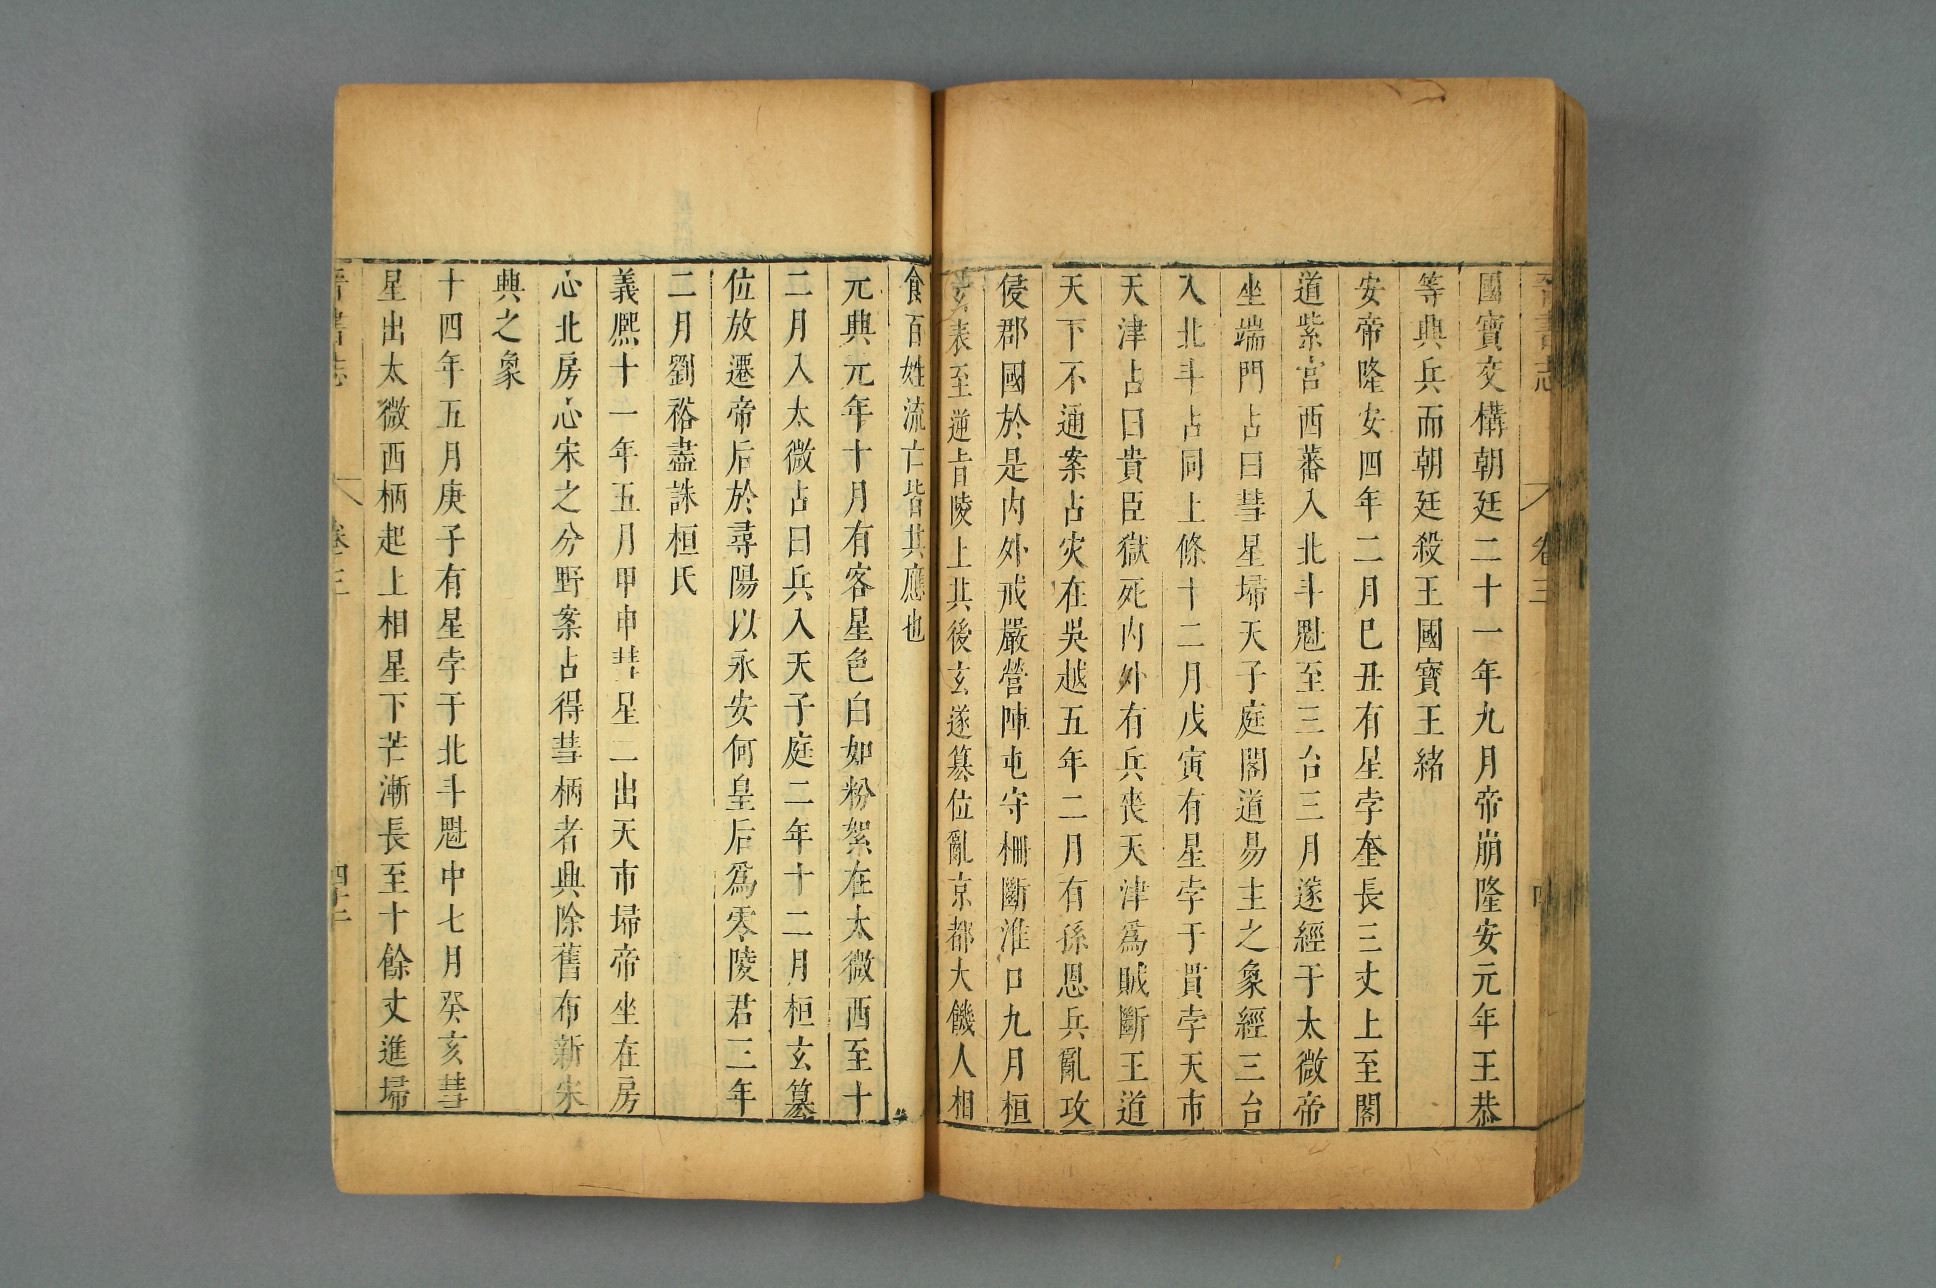 晉書志 卷三
國寶交構朝廷二十一年九月帝崩隆安元年王恭
等興兵而朝廷殺王國寶王緒
安帝隆安四年二月巳丑有星孛奎長三丈上至閣
道紫宮西蕃入北斗魁至三台三月遂經于太微帝
坐端門占曰彗星埽天子庭閣道易主之象經三台
入北斗占同上條十二月戊寅有星孛于貫孛天市
天津占曰貴臣獄死內外有兵喪天津爲賊斷王道
天下不通案占灾在吳越五年二月有孫恩兵亂攻
侵郡國於是內外戒嚴營陣屯守柵斷淮口九月桓
玄表至逆旨陵上其後玄遂篡位亂京都大饑人相
食百姓流亡皆其應也
元興元年十月有客星色白如粉絮在太微西至十
二月入太微占曰兵入天子庭二年十二月桓玄篡
位放遷帝后於尋陽以永安何皇后爲零陵君三年
二月劉裕盡誅桓氏
義熙十一年五月甲申彗星二出天市埽帝坐在房
心北房心宋之分野案占得彗柄者興除舊布新宋
興之象
十四年五月庚子有星孛于北斗魁中七月癸亥彗
星出太微西柄起上相星下芒漸長至十餘丈進埽
晉書志 卷三 四十二